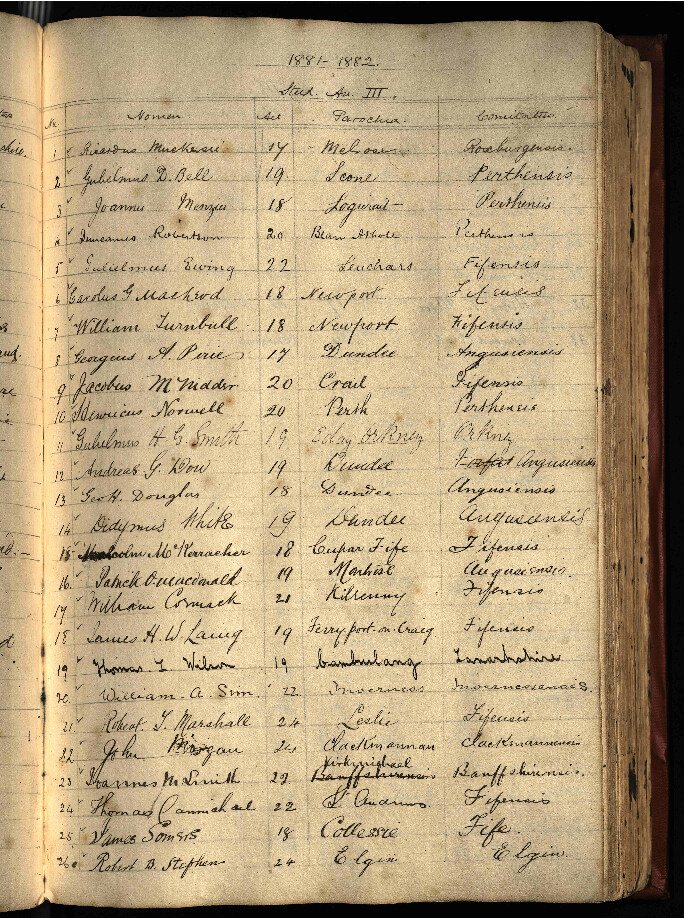 1881-1882.
Stud. An. III.
No. Nomen Aet Parochia. Comitatus.
1 Ricardus Mackenzie 17 Melrose Roxburgensis.
2 Gulielmus D. Bell 19 Scone Perthensis
3 Joannes Menzies 18 Logierait Perthensis
4 Duncanus Robertson 20 Blair Athole Perthensis
5 Gulielmus Ewing 22 Leuchars Fifensis
6 Carolus G Macleod 18 Newport Fifensis
7 William Turnbull 18 Newport Fifensis
8 Georgius A. Pirie 17 Dundee Angusiensis
9 Jacobus 20 Crail Fifensis
10 Henricus Norwell 20 Perth Perthensis
11 Gulielmus H. G. Smith 19 Eday Orkney Orkney
12 Andreas G. Dow 19 Dundee Angusiensis
13 Geo H. Douglas 18 Dundee Angusiensis
14 Didymus White 19 Dundee Angusiensis
15 Malcolm McKerracher 18 Cupar Fife Fifensis
16. Patrick 19 Montrose Angusiensis.
17 William Cormack 21 Kilrenny Fifensis
18 James H. W. Laing 19 Ferry-port-on-Craig Fifensis
19 Thomas L Wilson 19 Cambuslang Lanarkshire
20. William A. Sim. 22 Inverness Invernessensis.
21 Robert T. Marshall 24 Leslie Fifensis
22 John Morgan 24 Clackmannan Clackmannensis
Kirkmichael
23 Joannes M. Smith 22 Banffshirensis Banffshirensis.
24 Thomas Carmichael 22 St Andrews Fifensis
25 James Somers 18 Collessie Fife.
26. Robert B. Stephen 24 Elgin Elgin.